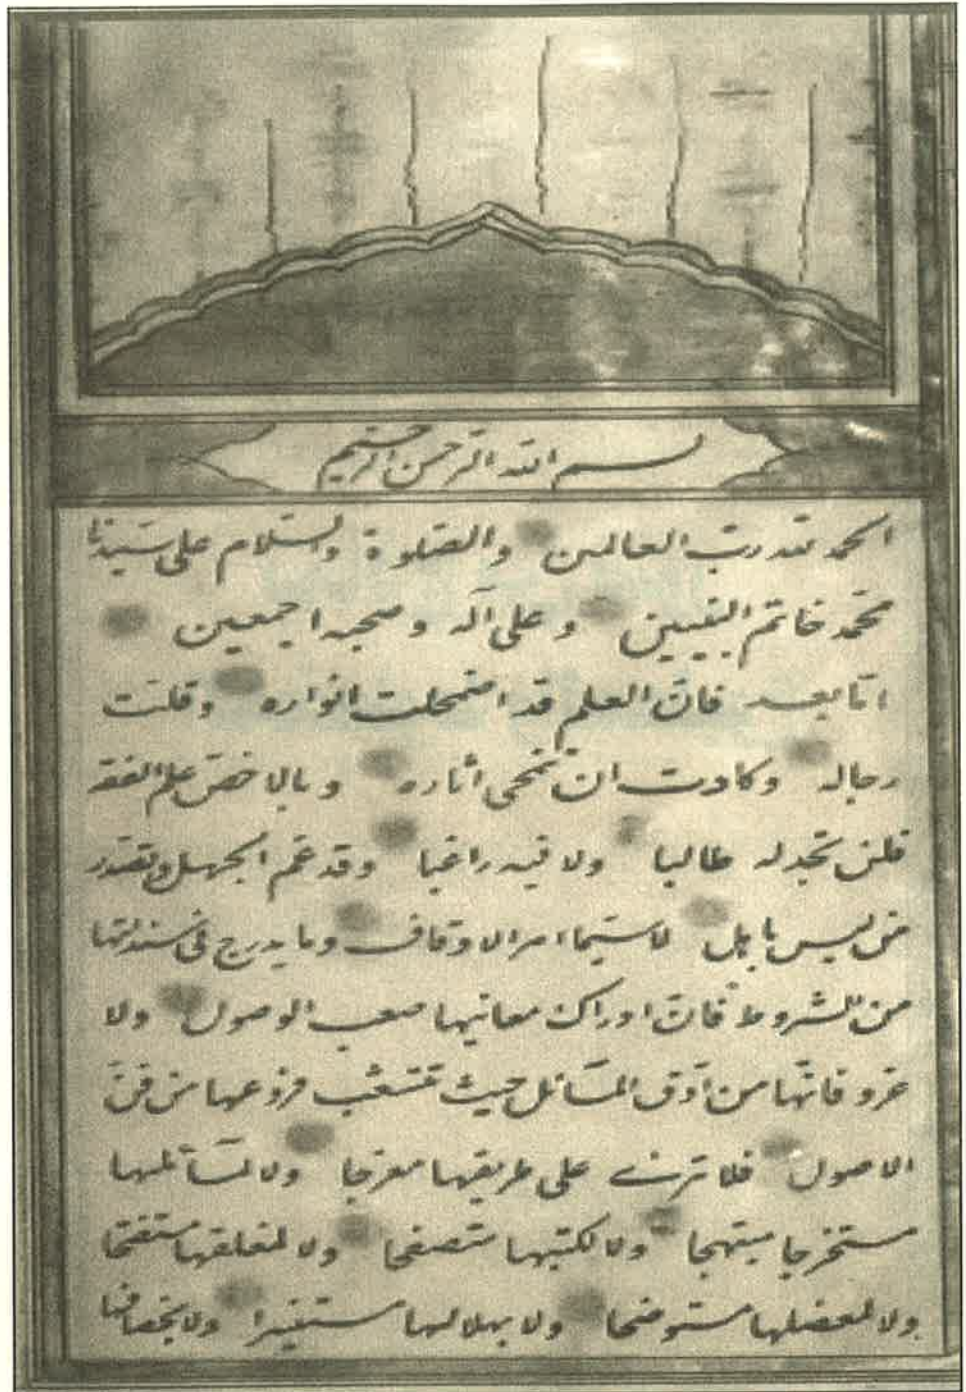 بسم الله الرحمن الرحيم
الحمد لله رب العالمين والصلوة والسلام على سيدنا
محمد خاتم النبيين وعلى آله وصحبه اجمعين
اما بعد فان العلم قد اضمحلت انواره وقلت
رجاله وكادت ان تمحى اثاره وبالاخص علم الفقه
فلن تجد له طالبا ولا فيه راغبا وقد عم الجهل وتصدر
من ليس باهل لا سيما امر الاوقاف وما يدرج في
من الشروط فان ادراك معانيها صعب الوصول ولا
غرو فانها من ادق المسائل حيث تتشعب فروعها من فن
الاصول فلا ترى على طريقها معرجا ولا لمسائلها
مستخرجا مبتهجا ولا لكتبها متصفحا ولا لمغلقها مستفتحا
ولا لمعضلها مستوضحا ولا بهلالها مستنيرا ولا بخصافها